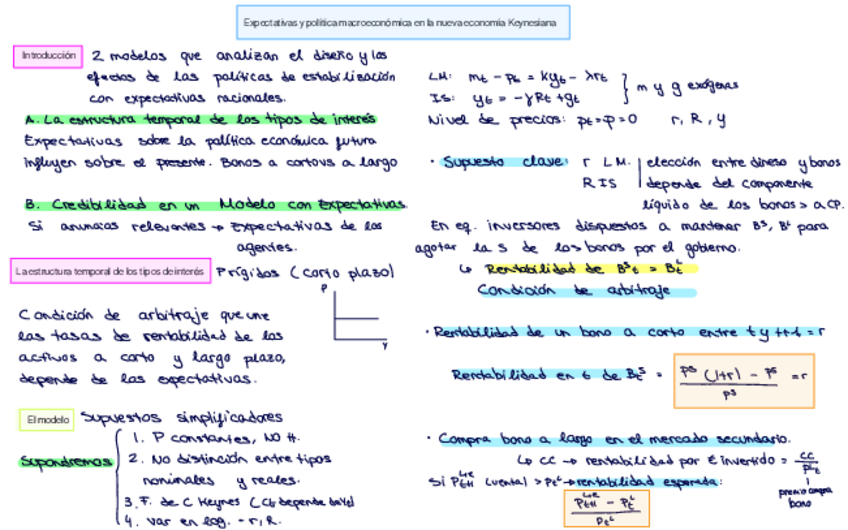 Expectativas y política macroeconómica en la nueva economía Keynesiana
Introducción
2 modelos que analizan el diseño y los
efectos de las políticas de estabilización
con expectativas racionales.
A. La estructura temporal de los tipos de interés
Expectativas sobre la política económica futura
influyen sobre el presente. Bonos a corto vs a largo
B. Credibilidad en un Modelo con Expectativas
Si anuncios relevantes → Expectativas de los
agentes.
La estructura temporal de los tipos de interés
P rígidos (corto plazo)
P
Y
Condición de arbitraje que une
las tasas de rentabilidad de los
activos a corto y largo plazo,
depende de las expectativas.
El modelo
Supuestos simplificadores
Supondremos
1. P constantes, NO π.
2. No distinción entre tipos
nominales y reales.
3. F. de C Keynes (Ct depende de Yt)
4. Var en log. - r, R.
LM: mt - pt = kyt - λrt
IS: yt = -γRt + gt
} m y g exógenas
Nivel de precios: pt = p = 0 r, R, y
· Supuesto clave: r LM. elección entre dinero y bonos
R IS depende del componente
líquido de los bonos > a CP.
En eq. inversores dispuestos a mantener Bˢ, Bᴸ para
agotar la S de los bonos por el gobierno.
↳ Rentabilidad de Bˢt = Bᴸt
Condición de arbitraje
· Rentabilidad de un bono a corto entre t y t+1 = r
Rentabilidad en t de Bˢt = (Pˢ (1+r) - Pˢ) / Pˢ = r
· Compra bono a largo en el mercado secundario.
↳ CC → rentabilidad por € invertido = CC / Pᴸt
precio compra
bono
Si Pᴸ'ᵉt+1 (venta) > Ptᴸ → rentabilidad esperada:
(Pᴸ'ᵉt+1 - Pᴸt) / Ptᴸ